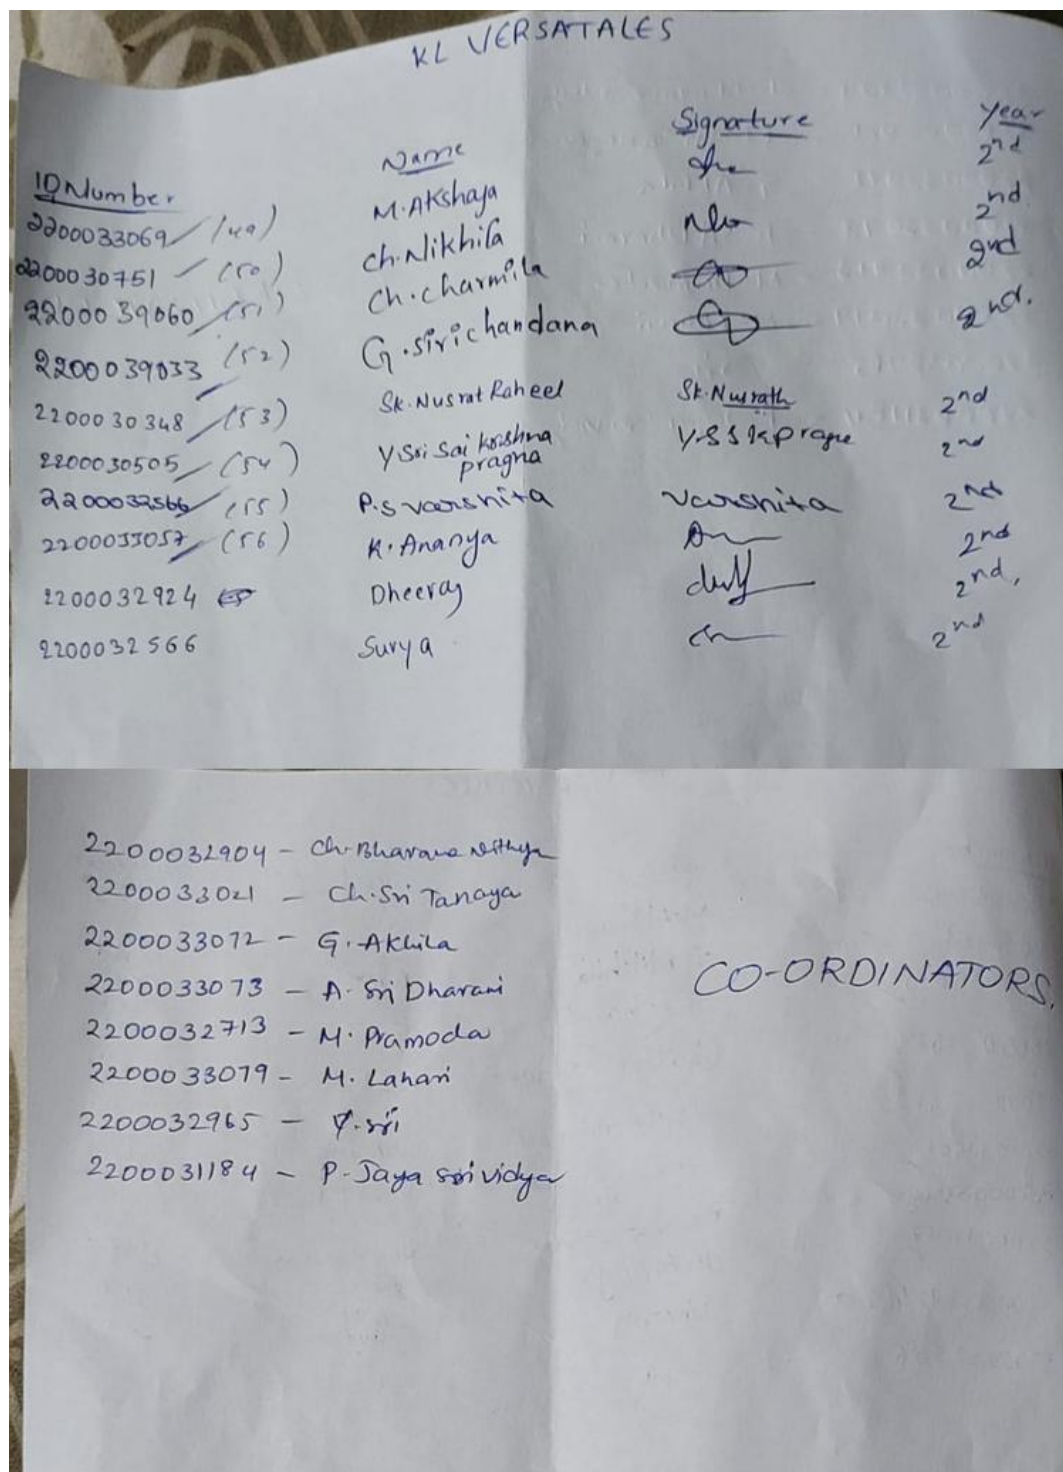 KL VERSATALES
ID Number Name Signature Year
2200033069 (49) M. Akshaja 2nd
2200030751 (50) Ch. Nikhila 2nd
2200039060 (51) Ch. Charmila 2nd
2200039033 (52) G. Siri chandana 2nd.
2200030348 (53) Sk. Nusrat Raheel Sk. Nusrath 2nd
2200030505 (54) Y Sri Sai krishna pragna 2nd
2200032566 (55) P.S varshita varshita 2nd
2200033057 (56) K. Ananya 2nd
2200032924 Dheeraj 2nd,
2200032566 Surya 2nd
2200032904 - Ch. Bhavana Nithya
2200033021 - Ch. Sri Tanaya
2200033072 - G. Akhila
2200033073 - A. Sri Dharani
2200032713 - M. Pramoda
2200033079 - M. Lahari
2200032965 - Y. sri
2200031184 - P. Jaya sri vidya
CO-ORDINATORS.